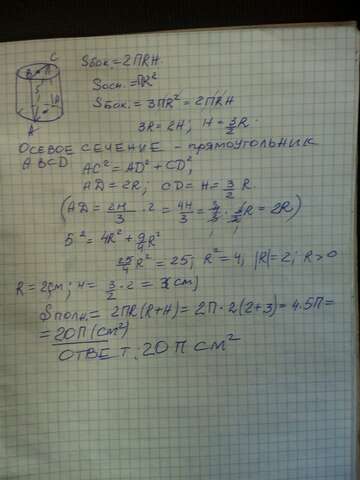 C
B
5
D
A
Sбок = 2ПRH
Sосн. = ПR²
Sбок. = 3ПR² = 2ПRH
3R = 2H; H = 3/2 R.
ОСЕВОЕ СЕЧЕНИЕ - ПРЯМОУГОЛЬНИК
ABCD. AC² = AD² + CD²,
AD = 2R; CD = H = 3/2 R.
(AD = 2H/3 · 2 = 4H/3 = 4/3 · 3/2 R = 2R)
5² = 4R² + 9/4 R²
25/4 R² = 25; R² = 4, |R| = 2; R > 0
R = 2см; H = 3/2 · 2 = 3(см)
Sполн. = 2ПR(R+H) = 2П·2(2+3) = 4·5П =
= 20П (см²)
ОТВЕТ: 20П см²